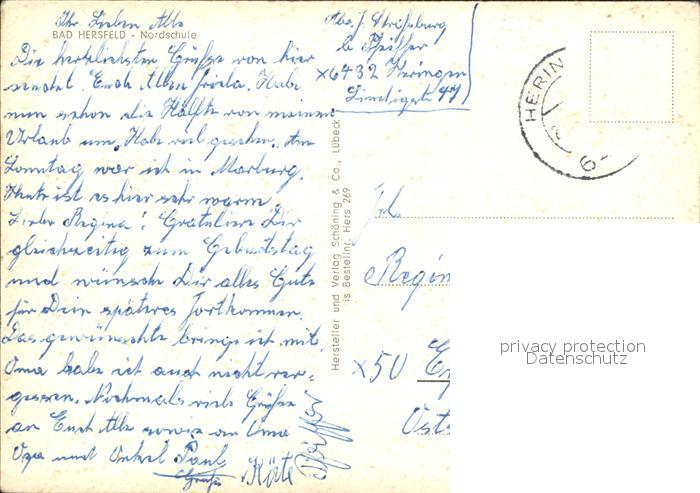 Ihr Lieben Alle
BAD HERSFELD - Nordschule
Die herzlichsten Grüße von hier
sendet Euch Allen Frieda. Habe
nun schon die Hälfte von meinem
Urlaub um. Habe viel gesehen. Am
Sonntag war ich in Marburg.
Heute ist es hier sehr warm.
Liebe Regina! Gratuliere Dir
gleichzeitig zum Geburtstag
und wünsche Dir alles Gute
für Dein späteres Fortkommen.
Das gewünschte bringe ich mit,
Oma habe ich auch nicht ver-
gessen. Nochmals viele Grüße
an Euch Alle sowie an Oma
Opa und Onkel Paul
Gruß Käte
Abs. J. Straßburg
b. Pfeiffer
X6432 Heringen
47
Hersteller und Verlag Schöning & Co., Lübeck
is Bestellnr. Hers 269
HERIN
6-
Frl.
Regin
X50 E
Osts
privacy protection
Datenschutz